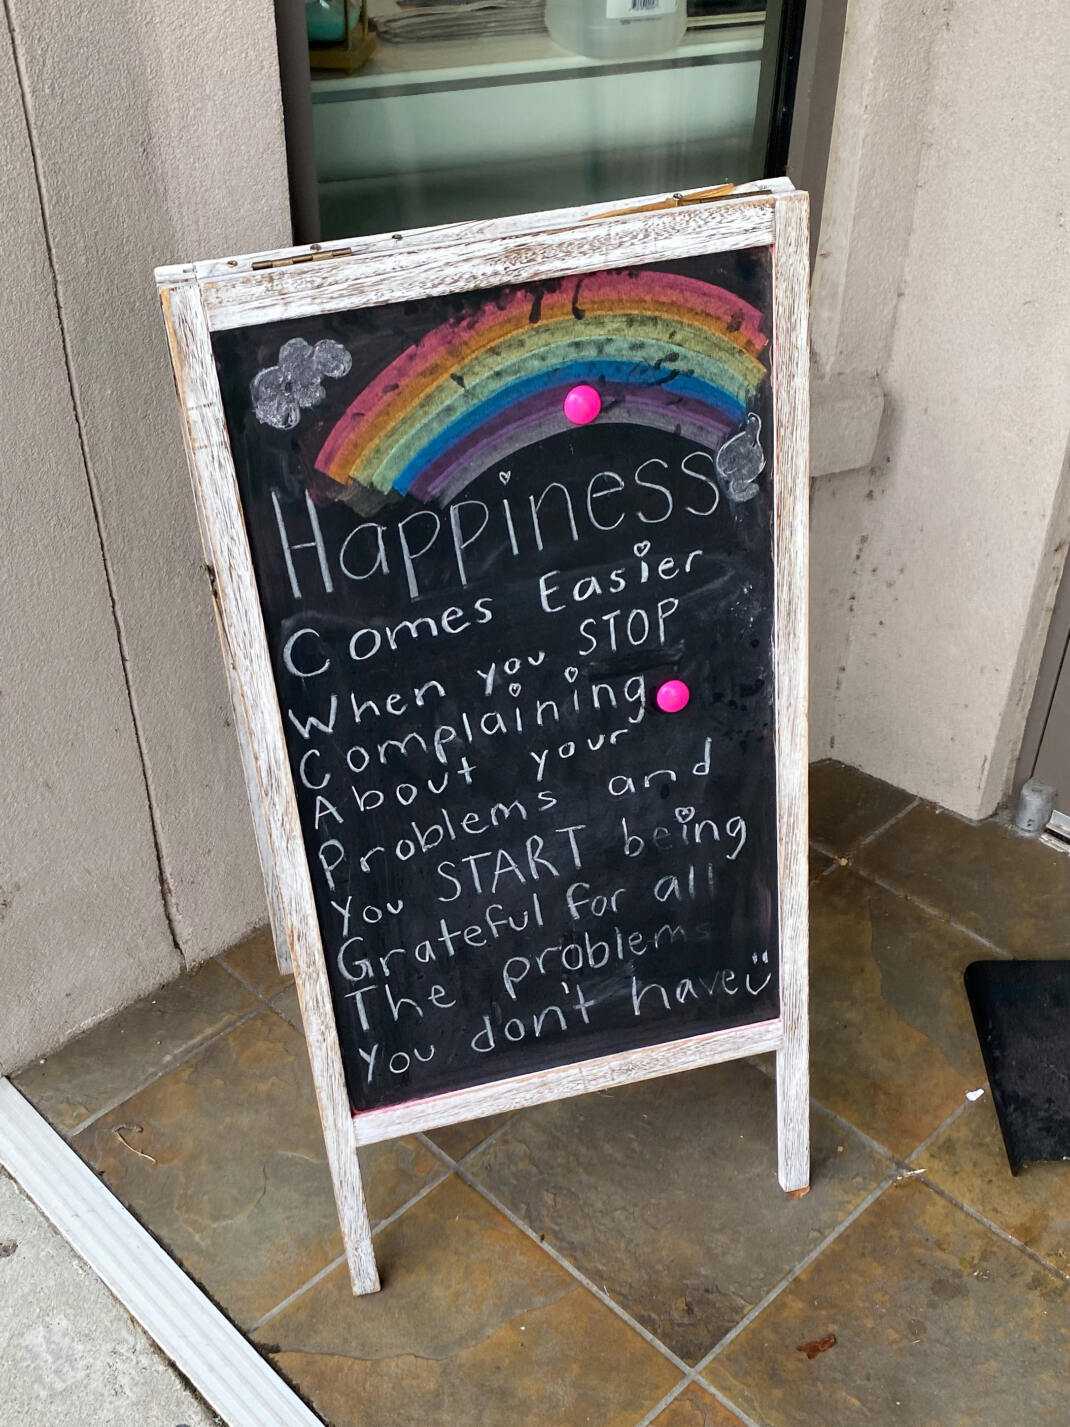 Happiness
Comes Easier
When you STOP
Complaining
About your
Problems and
You START being
Grateful for all
The problems
You don't have